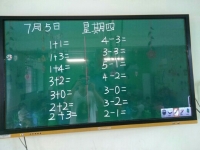 7月5日 星期四
1+1= 4-3=
1+3= 3-3=
1+4= 5-1=
3+2= 4-2=
3+0= 3-0=
2+2= 3-2=
2+3= 2-1=